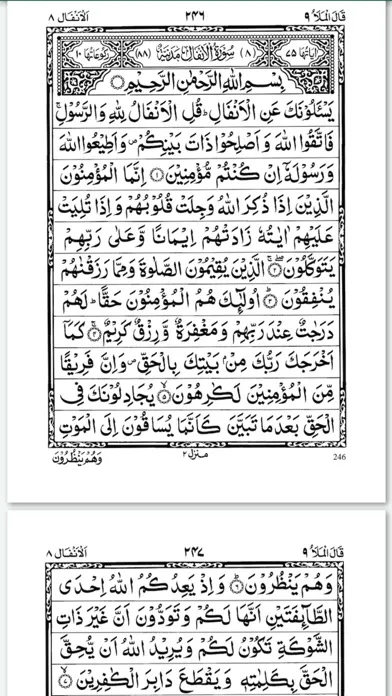 قَالَ الْمَلَاُ ٩ ٢٤٦ اَلْاَنْفَال ٨
اٰیَاتُهَا ٧٥ (٨) سُوْرَةُ الْاَنْفَالِ مَدَنِیَّةٌ (٨٨) رُكُوْعَاتُهَا ١٠
بِسْمِ اللّٰهِ الرَّحْمٰنِ الرَّحِیْمِ
یَسْـَٔلُوْنَكَ عَنِ الْاَنْفَالِ ؕ قُلِ الْاَنْفَالُ لِلّٰهِ وَ الرَّسُوْلِ ۚ
فَاتَّقُوا اللّٰهَ وَ اَصْلِحُوْا ذَاتَ بَیْنِكُمْ ۪ وَ اَطِیْعُوا اللّٰهَ
وَ رَسُوْلَهٗۤ اِنْ كُنْتُمْ مُّؤْمِنِیْنَ ۝۱ اِنَّمَا الْمُؤْمِنُوْنَ
الَّذِیْنَ اِذَا ذُكِرَ اللّٰهُ وَجِلَتْ قُلُوْبُهُمْ وَ اِذَا تُلِیَتْ
عَلَیْهِمْ اٰیٰتُهٗ زَادَتْهُمْ اِیْمَانًا وَّ عَلٰی رَبِّهِمْ
یَتَوَكَّلُوْنَ ۝۲ الَّذِیْنَ یُقِیْمُوْنَ الصَّلٰوةَ وَ مِمَّا رَزَقْنٰهُمْ
یُنْفِقُوْنَ ۝۳ اُولٰٓىِٕكَ هُمُ الْمُؤْمِنُوْنَ حَقًّا ؕ لَهُمْ
دَرَجٰتٌ عِنْدَ رَبِّهِمْ وَ مَغْفِرَةٌ وَّ رِزْقٌ كَرِیْمٌ ۝۴ كَمَاۤ
اَخْرَجَكَ رَبُّكَ مِنْۢ بَیْتِكَ بِالْحَقِّ ۪ وَ اِنَّ فَرِیْقًا
مِّنَ الْمُؤْمِنِیْنَ لَكٰرِهُوْنَ ۝۵ یُجَادِلُوْنَكَ فِی
الْحَقِّ بَعْدَ مَا تَبَیَّنَ كَاَنَّمَا یُسَاقُوْنَ اِلَی الْمَوْتِ
246 منزل ٢ وَهُمْ یَنْظُرُوْنَ
قَالَ الْمَلَاُ ٩ ٢٤٧ اَلْاَنْفَال ٨
وَ هُمْ یَنْظُرُوْنَ ۝۶ وَ اِذْ یَعِدُكُمُ اللّٰهُ اِحْدَی
الطَّآىِٕفَتَیْنِ اَنَّهَا لَكُمْ وَ تَوَدُّوْنَ اَنَّ غَیْرَ ذَاتِ
الشَّوْكَةِ تَكُوْنُ لَكُمْ وَ یُرِیْدُ اللّٰهُ اَنْ یُّحِقَّ
الْحَقَّ بِكَلِمٰتِهٖ وَ یَقْطَعَ دَابِرَ الْكٰفِرِیْنَ ۝۷